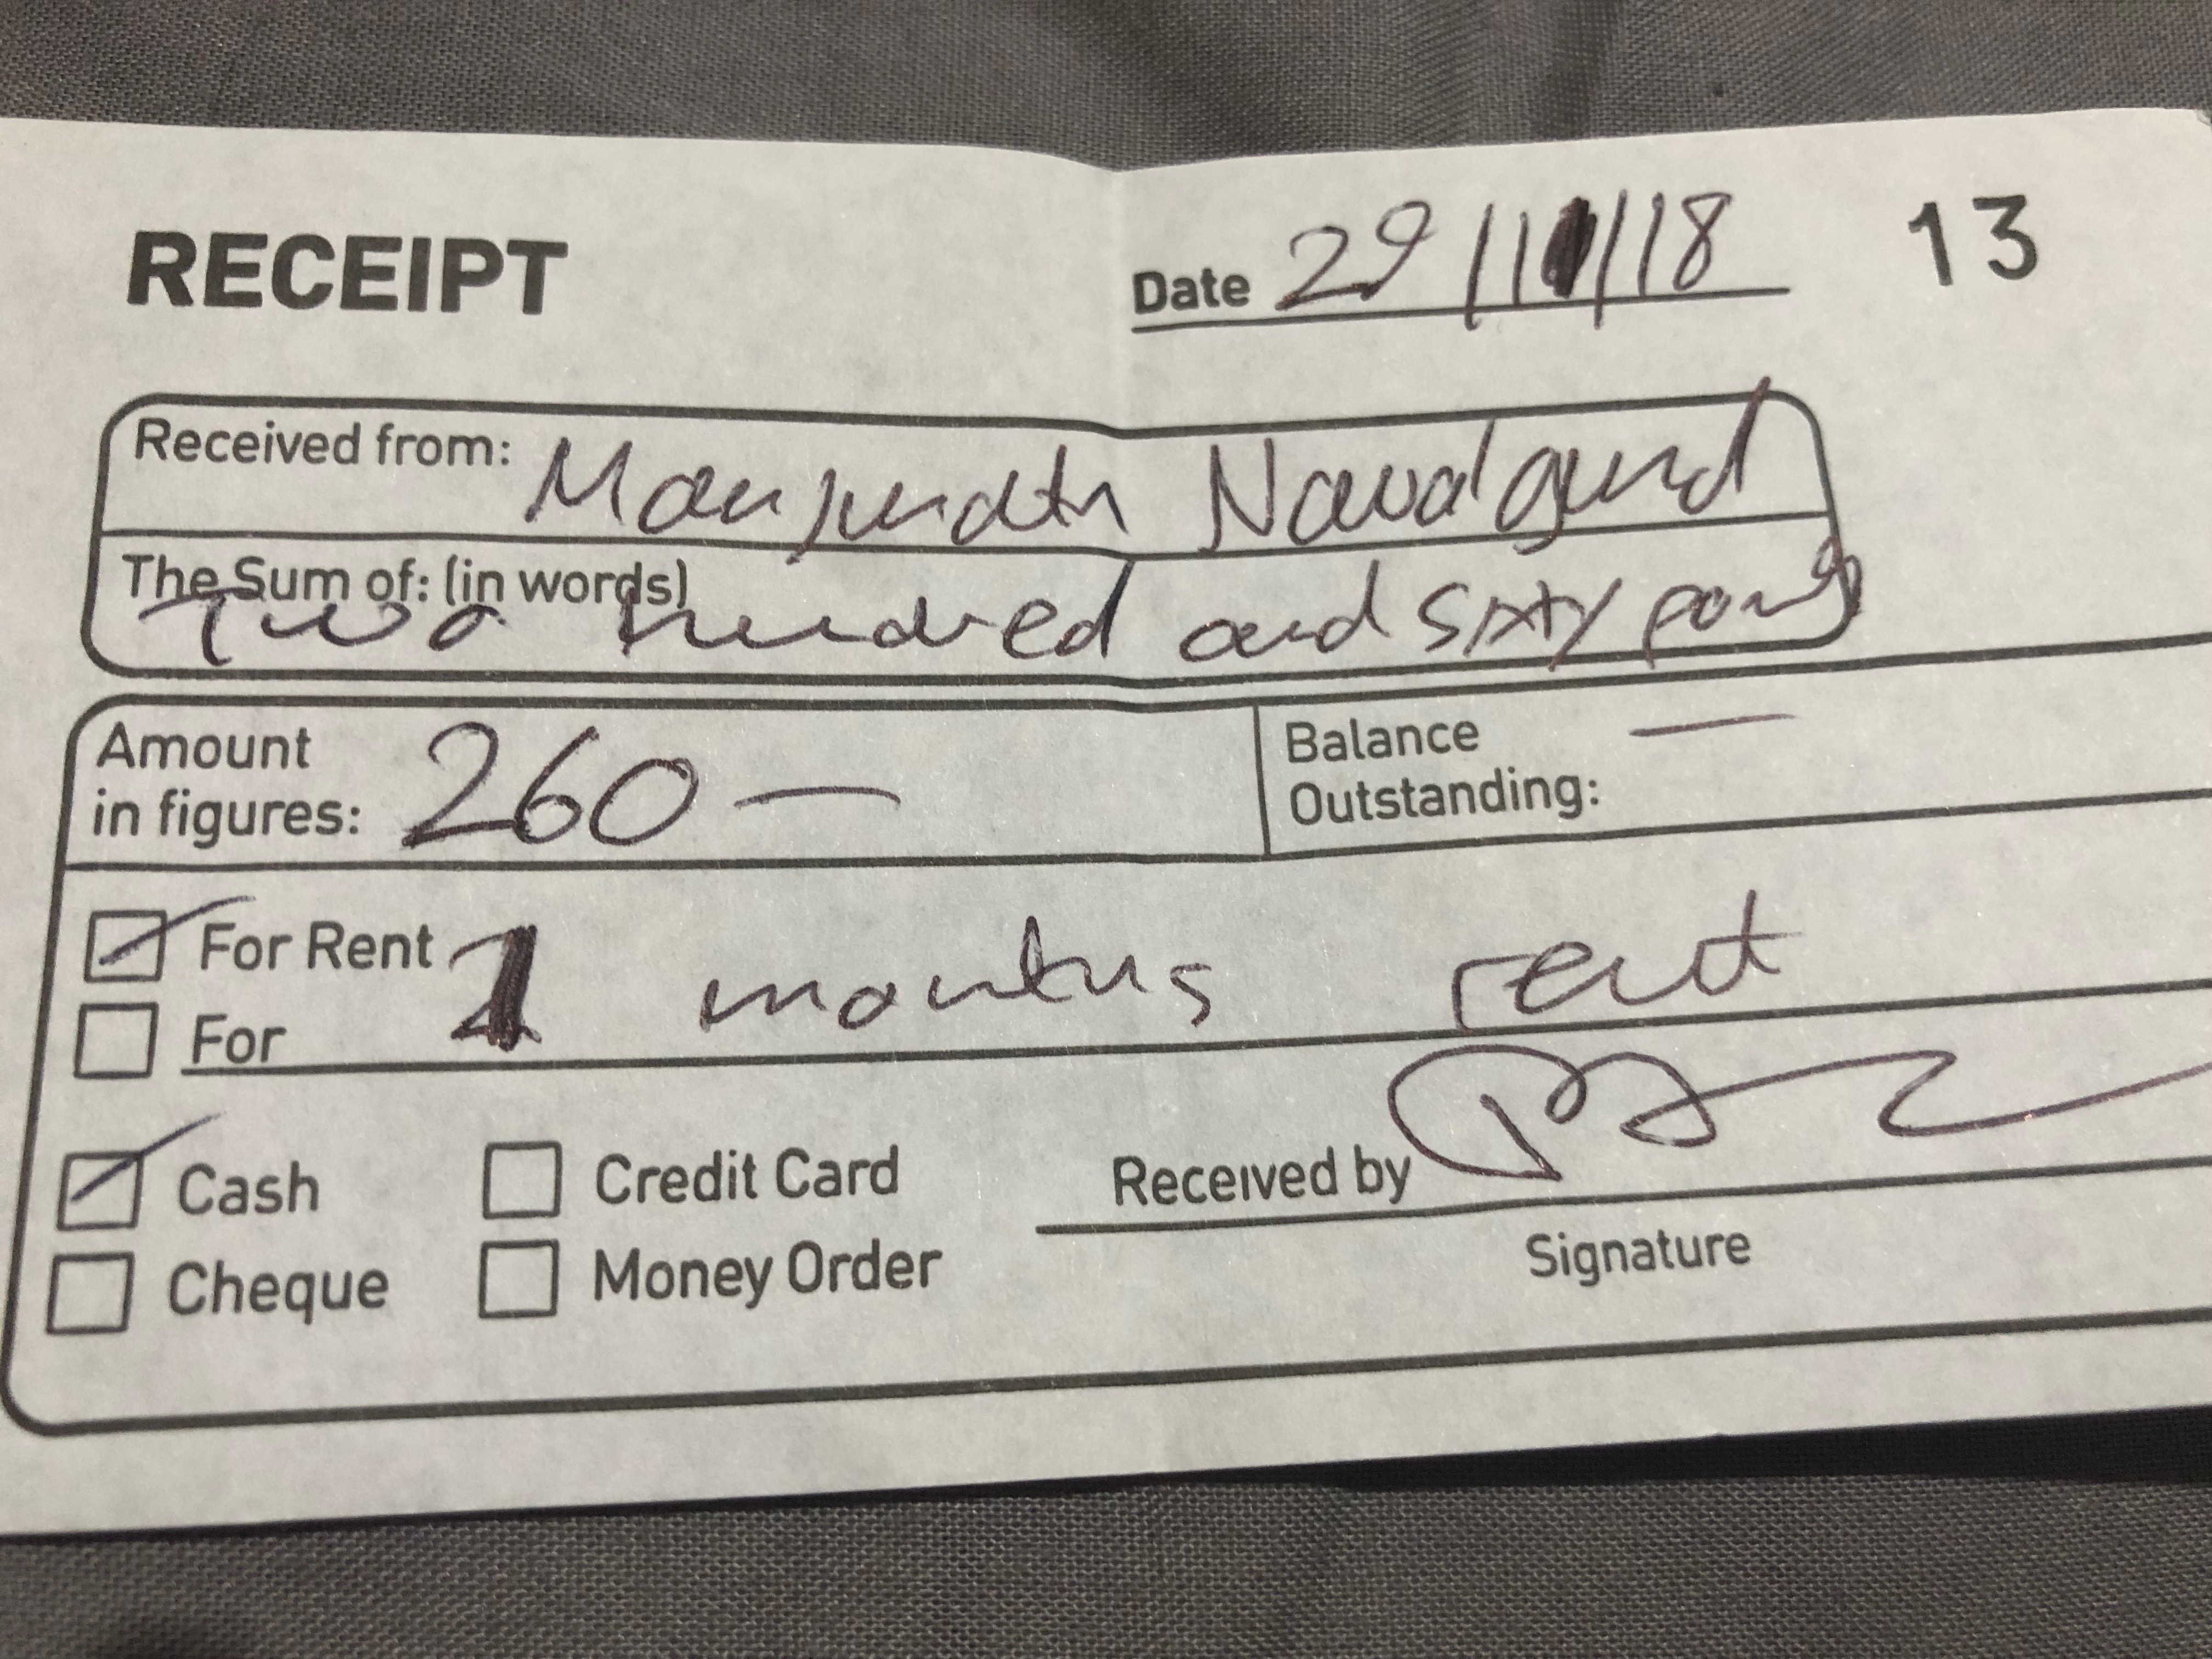 RECEIPT Date 29/11/18 13
Received from: Manjunath Navalgund
The Sum of: (in words)
Two hundred and sixty pounds
Amount
in figures: 260 —
Balance
Outstanding: —
For Rent 1 months rent
For
Cash Credit Card
Cheque Money Order
Received by
Signature